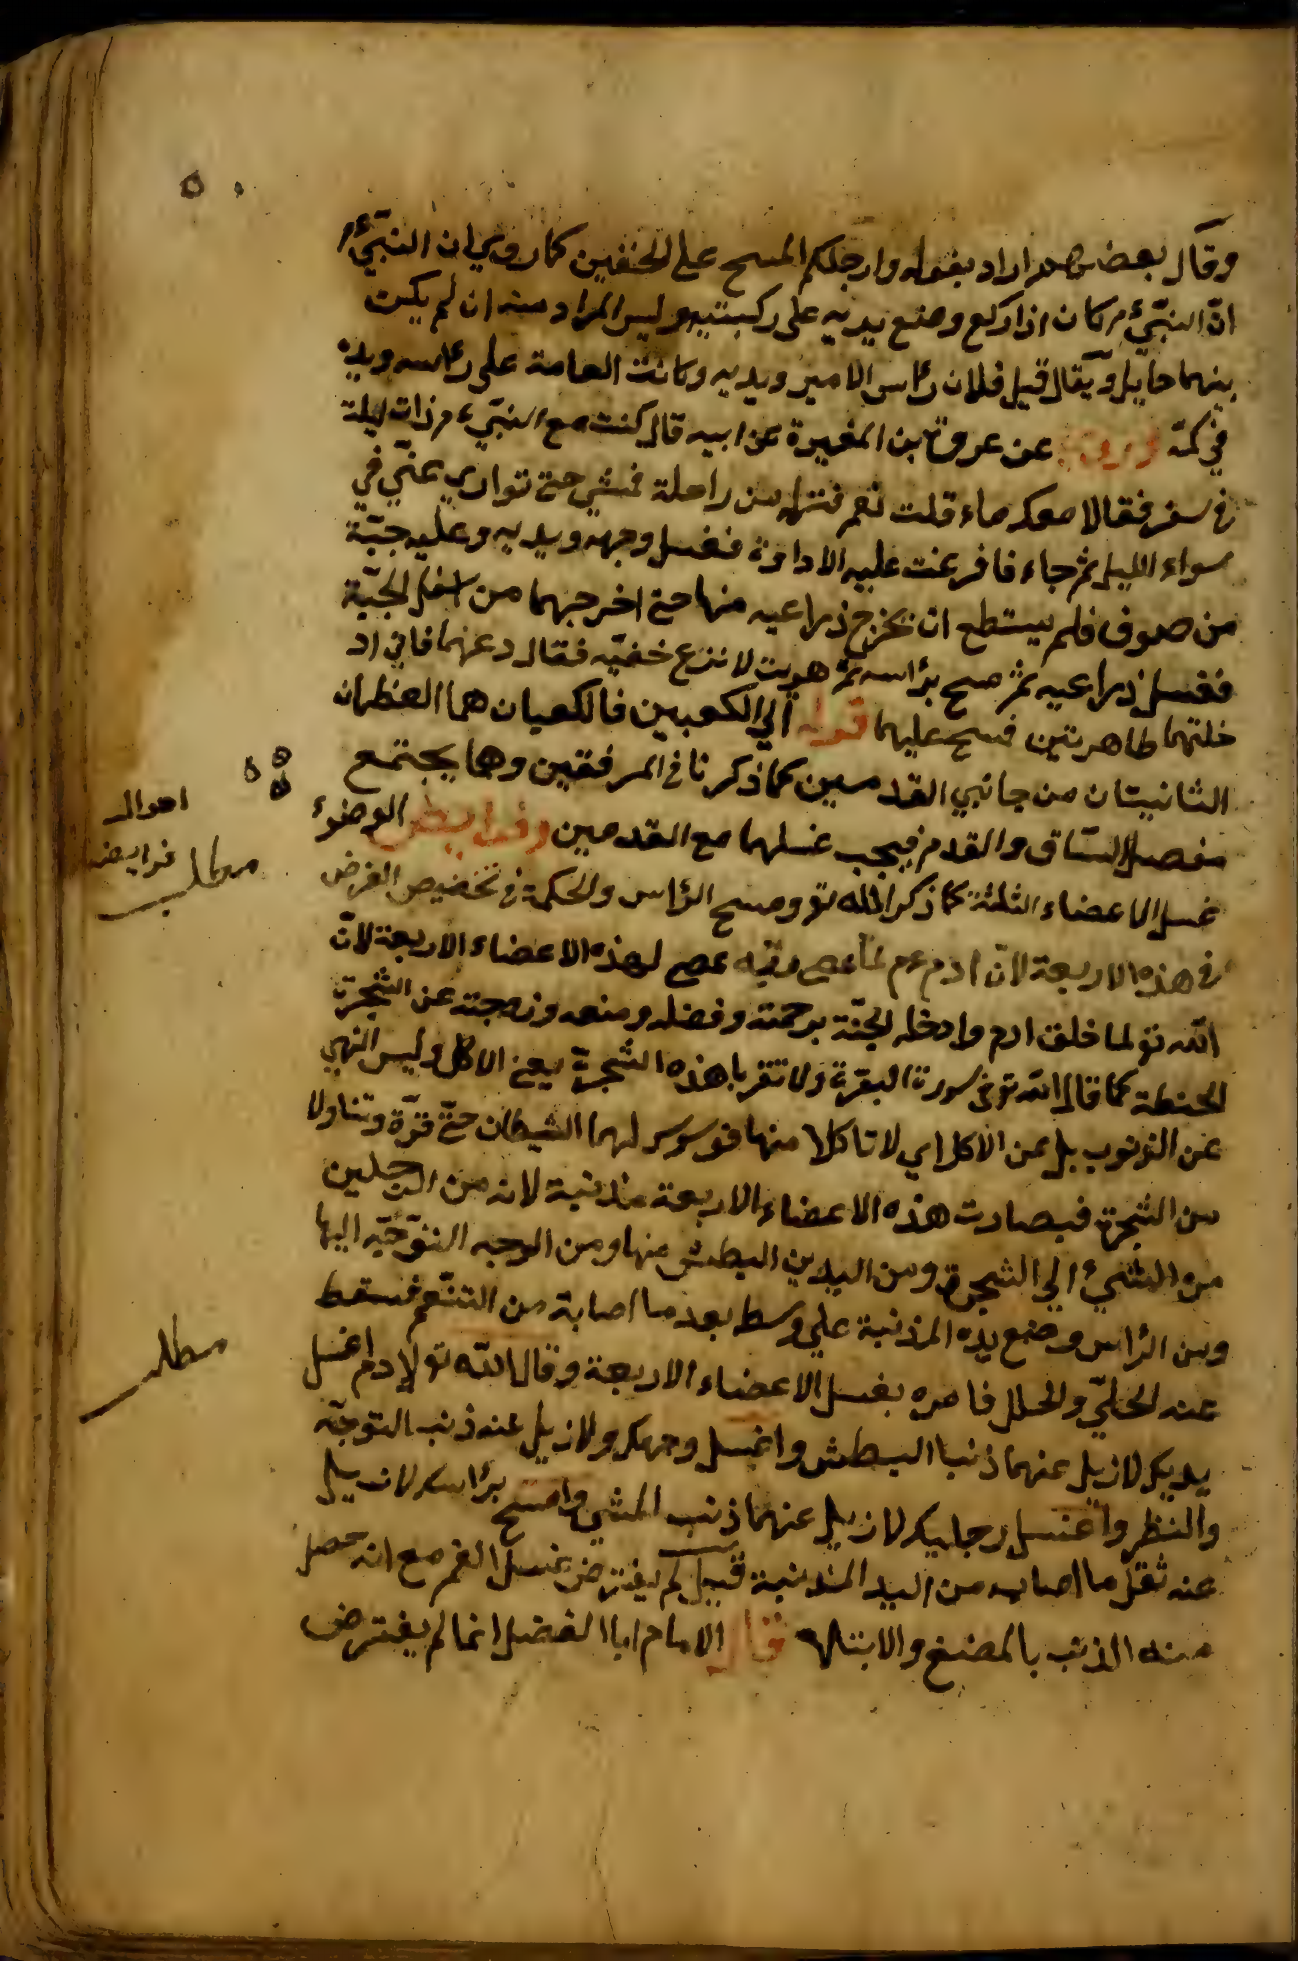 وقال بعضهم اراد بقوله وارجلكم المسح على الخفين كما روي ان النبي م
ان النبي م كان اذا ركع وضع يديه على ركبتيه وليس المراد منه ان لم يكن
بينهما حايل ويقال قبل فلان رأس الامير ويديه وكانت العمامة على رأسه ويده
في كمه وروي عن عروة بن المغيرة عن ابيه قال كنت مع النبي م ذات ليلة
في سفر فقال امعك ماء قلت نعم فنزل من راحلته فمشى حتى توارى عني في
سواء الليل ثم جاء فافرغت عليه الاداوة فغسل وجهه ويديه وعليه جبة
من صوف فلم يستطع ان يخرج ذراعيه منها حتى اخرجهما من اسفل الجبة
فغسل ذراعيه ثم مسح برأسه ثم هويت لانزع خفيه فقال دعهما فاني اد
خلتهما طاهرتين فمسح عليهما قوله الي الكعبين فالكعبان هما العظمان
الناتيتان من جانبي القدمين كما ذكرنا في المرفقين وهما يجتمع
مفصل الساق والقدم فيجب غسلهما مع القدمين وفرايض الوضوء
احوال
فرايض
مطلب
غسل الاعضاء الثلثة كما ذكر الله تع ومسح الرأس والحكمة في تخصيص الفرض
في هذه الاربعة لان ادم عم لما عصى ربه عصى لهذه الاعضاء الاربعة لان
الله تع لما خلق ادم وادخله الجنة برحمته وفضله ومنعه وزوجته عن الشجرة
الحنطة كما قال الله تع في سورة البقرة ولا تقربا هذه الشجرة يعني الاكل وليس النهي
عن القرب بل عن الاكل اي لا تاكلا منها فوسوس لهما الشيطان حتى وتناولا
من الشجرة فصارت هذه الاعضاء الاربعة مذنبة لانه من الرجلين
من المشي الي الشجرة ومن اليدين البطش منها ومن الوجه التوجه اليها
ومن الرأس وضع يده المذنبة علي وسط بعد ما اصابة من التنعم فسقط
عنه الحلي والحلل فامره بغسل الاعضاء الاربعة وقال الله تع لادم اغسل
مطلب
يديك لازيل عنهما ذنبا البطش واغسل وجهك ولازيل عنه ذنب التوجه
والنظر واغسل رجليك لازيل عنهما ذنب المشي وامسح برأسك لازيل
عنه ثقل ما اصاب من اليد المذنبة قيل لم يفترض غسل الفم مع انه حصل
منه الذنب بالمضغ والابتلاع فقال الامام ابا الفضل انما لم يفترض